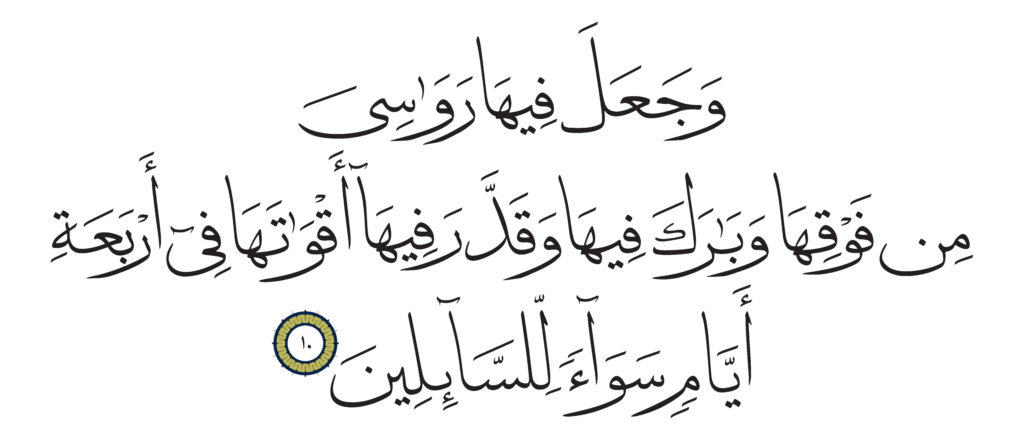 وَجَعَلَ فِيهَا رَوَٰسِىَ
مِن فَوْقِهَا وَبَـٰرَكَ فِيهَا وَقَدَّرَ فِيهَآ أَقْوَٰتَهَا فِىٓ أَرْبَعَةِ
أَيَّامٍ سَوَآءً لِّلسَّآئِلِينَ ١٠